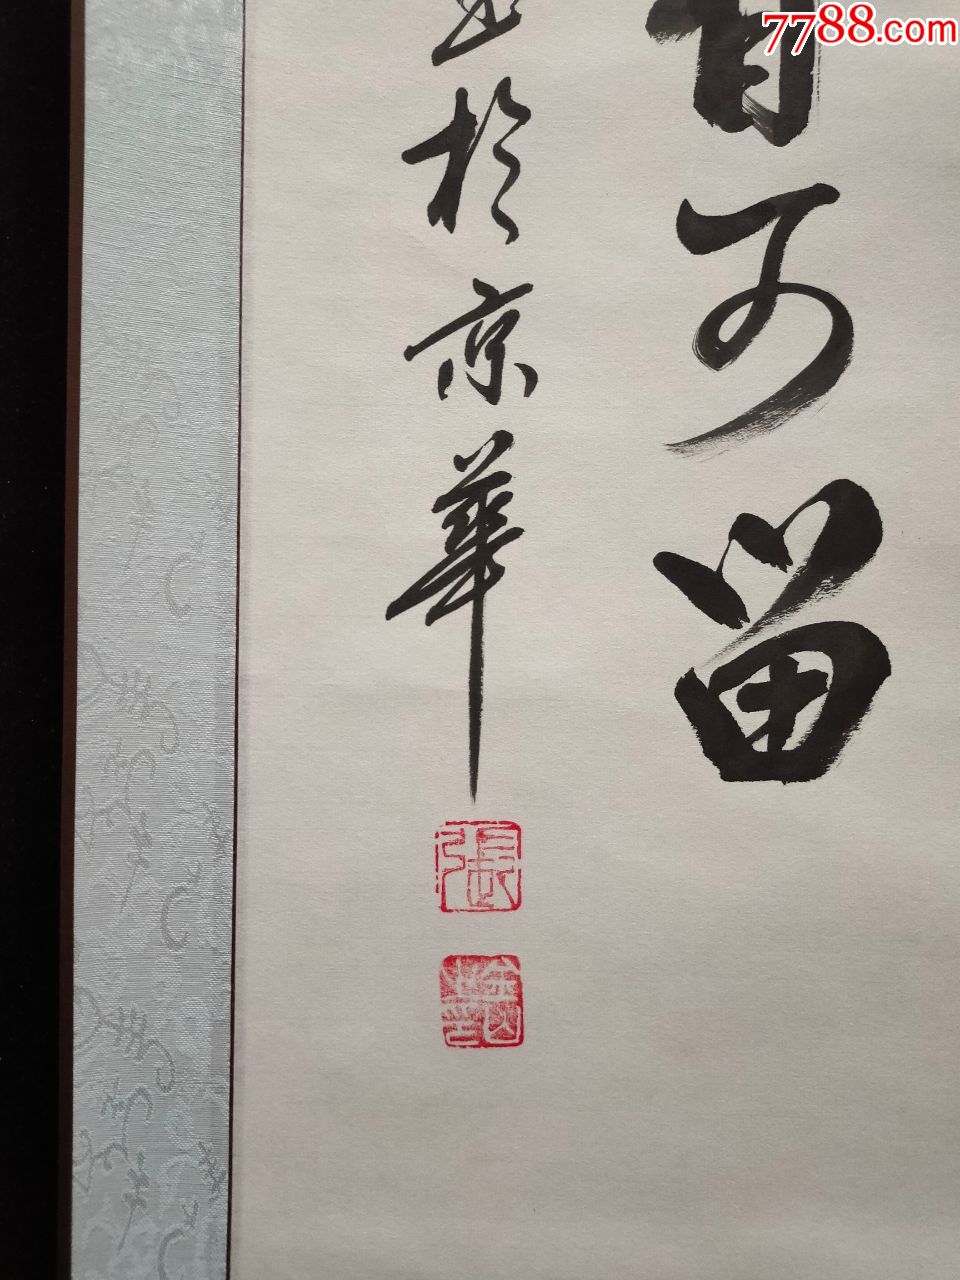 7788.com
可留
於京華
張